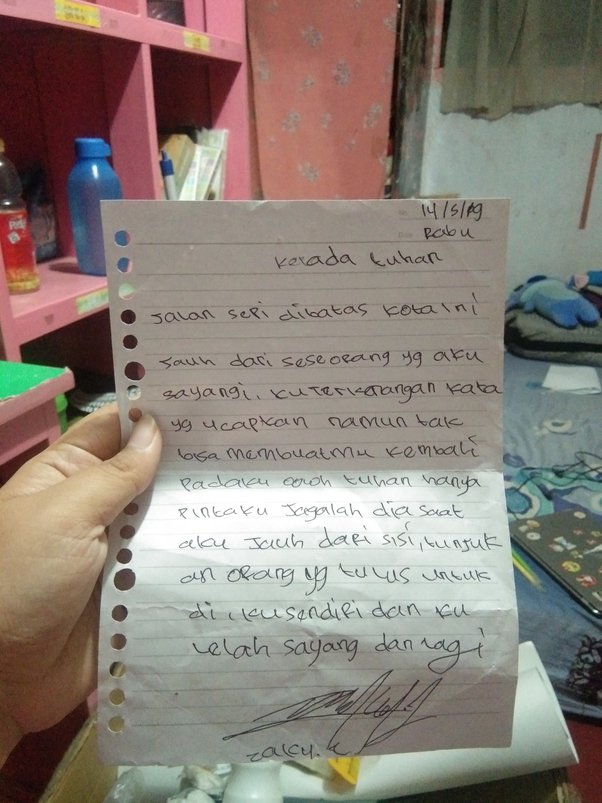 14/5/09
Rabu
kepada tuhan
Jalan sepi dibatas kota ini
Jauh dari seseorang yg aku
sayangi. ku terkenangan kata
yg ucapkan namun tak
bisa membuatmu kembali
padaku oooh tuhan hanya
pintaku Jagalah dia saat
aku Jauh dari sisi, tunjuk
an orang yg tulus untuk
di
ku sendiri dan ku
lelah sayang dan lagi
zaky.k